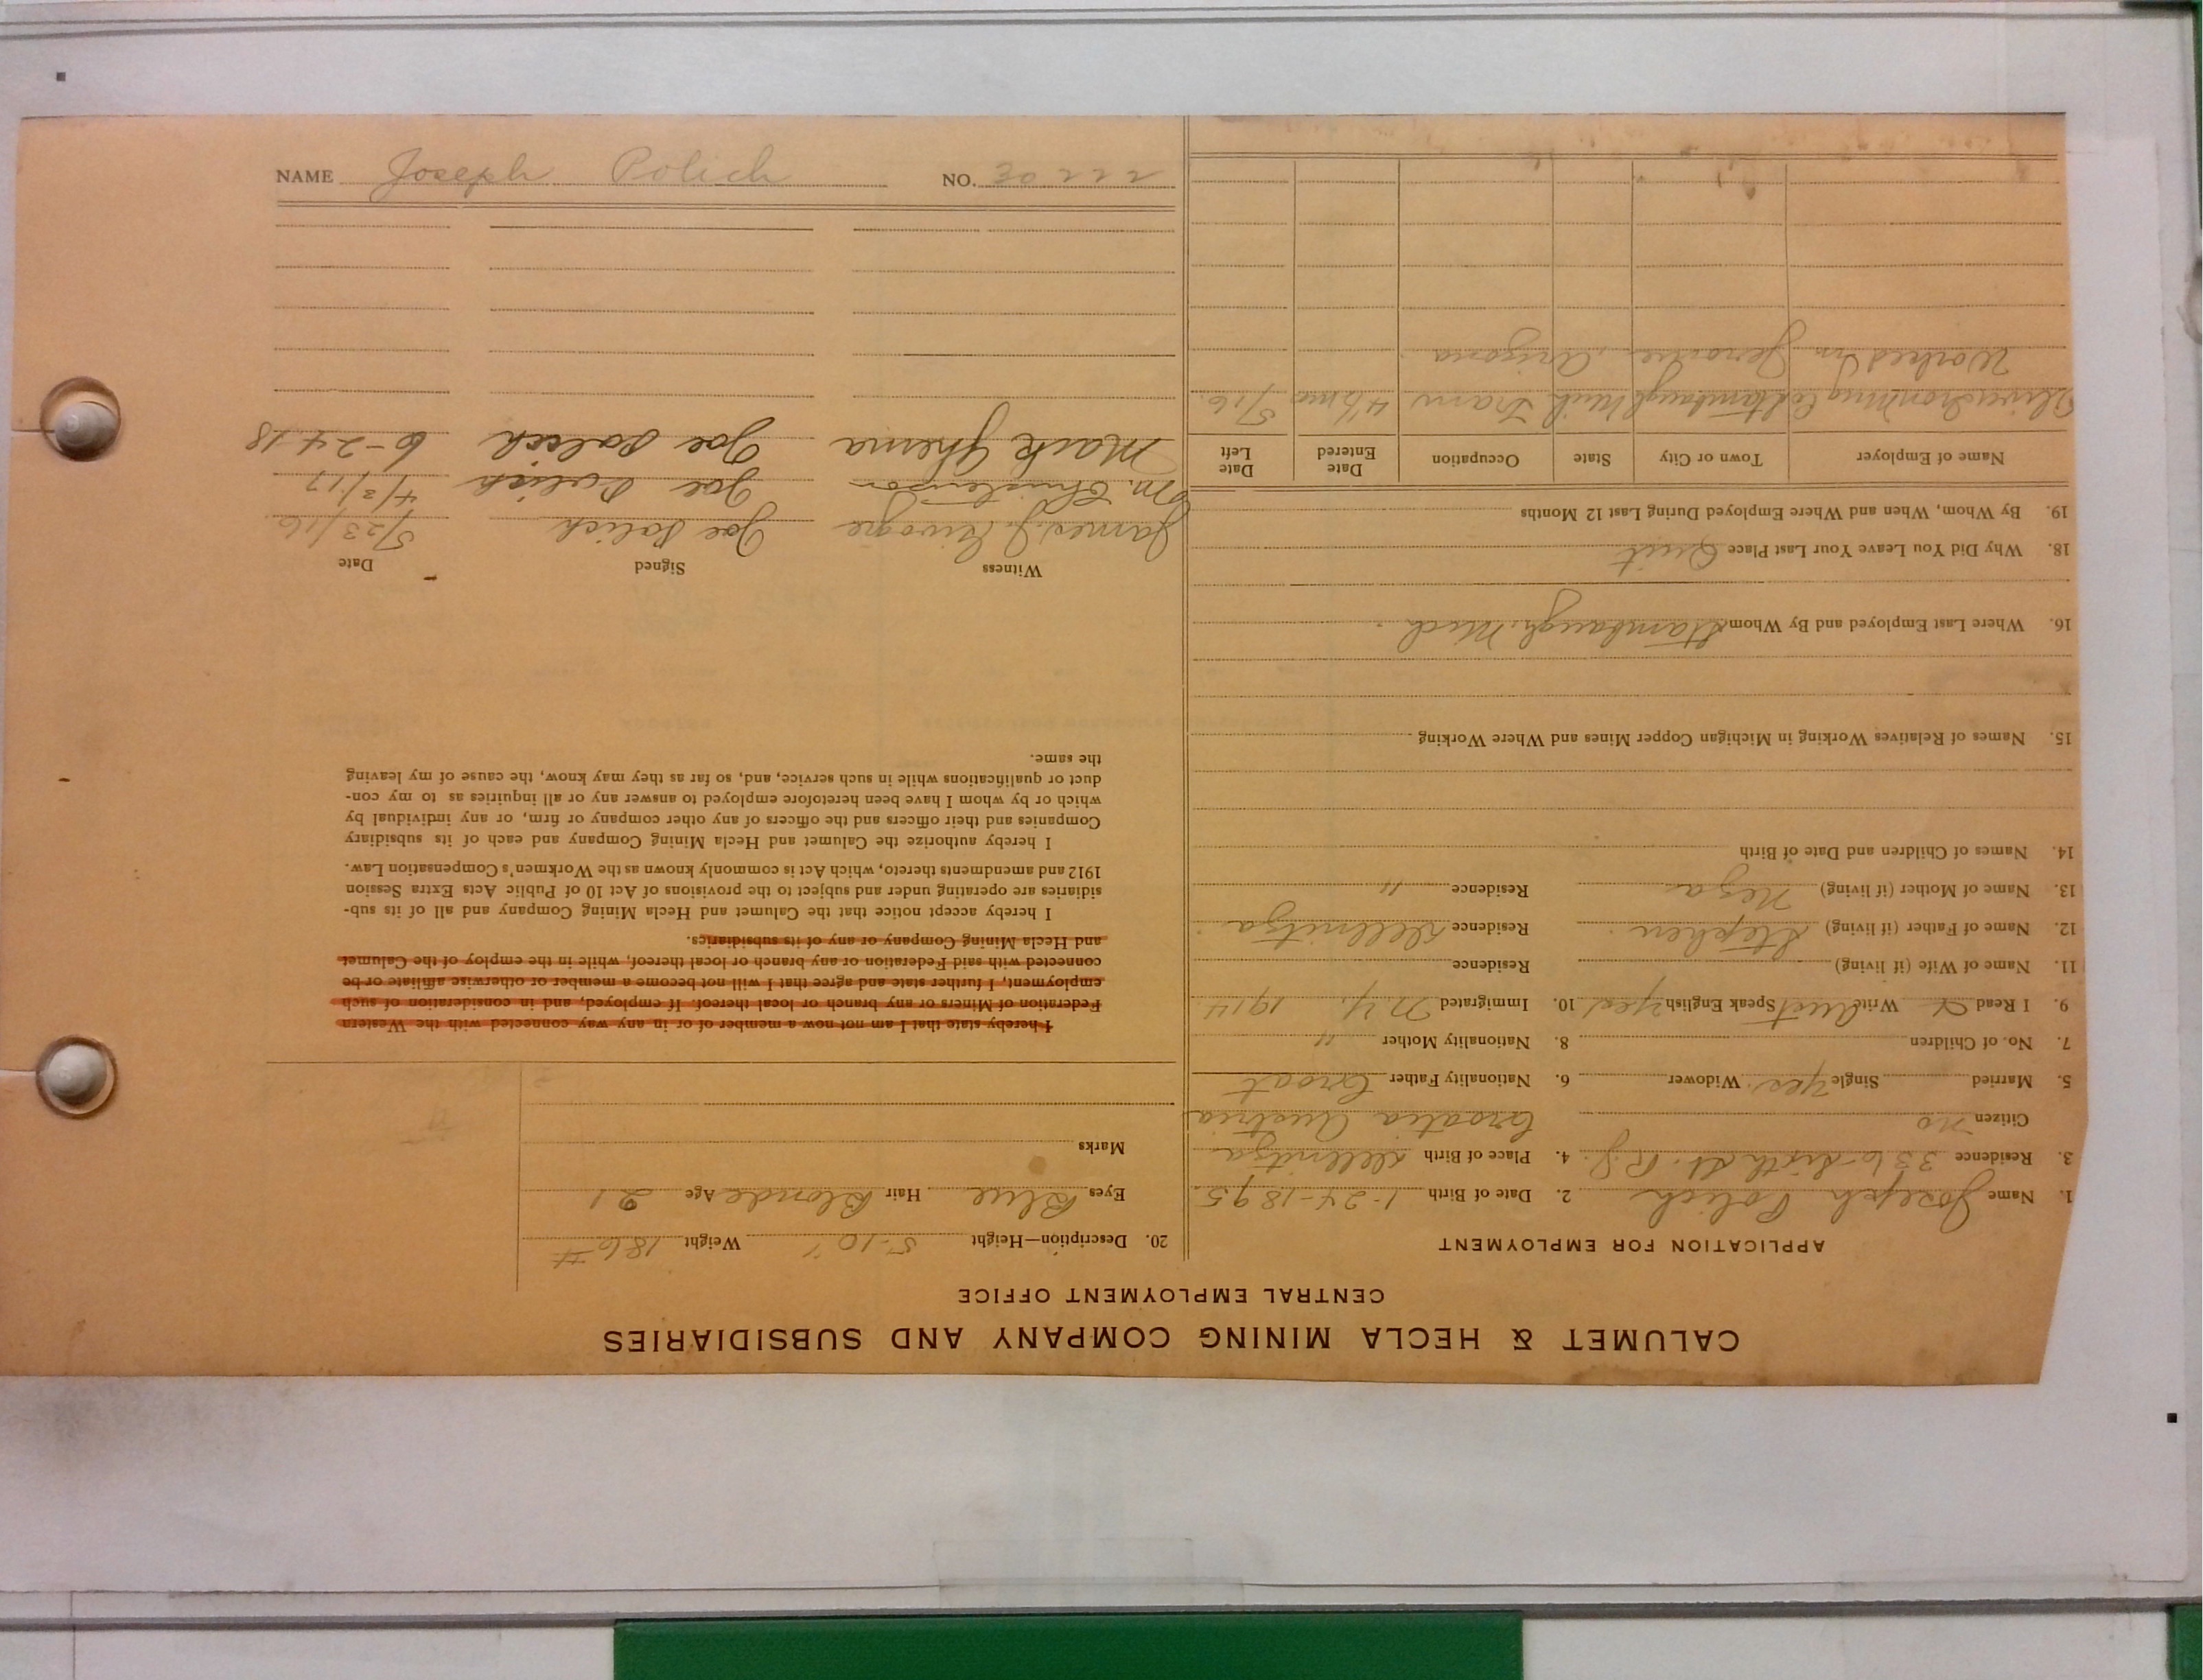 CALUMET & HECLA MINING COMPANY AND SUBSIDIARIES
CENTRAL EMPLOYMENT OFFICE
APPLICATION FOR EMPLOYMENT
1. Name Joseph Polich 2. Date of Birth 1-24-1895
3. Residence 336 Sixth St. R.J. 4. Place of Birth Dellnitza
Citizen no Croatia Austria
5. Married Single Yes. Widower 6. Nationality Father Croat
7. No. of Children 8. Nationality Mother "
9. I Read & Write Aust Speak English Yes 10. Immigrated N.Y. 1914
11. Name of Wife (if living) Residence
12. Name of Father (if living) Stephen Residence Dellnitza
13. Name of Mother (if living) Neza Residence "
14. Names of Children and Date of Birth
15. Names of Relatives Working in Michigan Copper Mines and Where Working
16. Where Last Employed and By Whom Stambaugh, Mich.
18. Why Did You Leave Your Last Place Quit
19. By Whom, When and Where Employed During Last 12 Months
Name of Employer Town or City State Occupation Date Entered Date Left
Iron Mng Co Stambaugh Mich Tram 4½ mo 5/16.
Worked in Jerome, Arizona
20. Description—Height 5-10" Weight 186 #
Eyes Blue Hair Blonde Age 21
Marks
I hereby state that I am not now a member of or in any way connected with the Western
Federation of Miners or any branch or local thereof. If employed, and in consideration of such
employment, I further state and agree that I will not become a member or otherwise affiliate or be
connected with said Federation or any branch or local thereof, while in the employ of the Calumet
and Hecla Mining Company or any of its subsidiaries.
I hereby accept notice that the Calumet and Hecla Mining Company and all of its sub-
sidiaries are operating under and subject to the provisions of Act 10 of Public Acts Extra Session
1912 and amendments thereto, which Act is commonly known as the Workmen's Compensation Law.
I hereby authorize the Calumet and Hecla Mining Company and each of its subsidiary
Companies and their officers and the officers of any other company or firm, or any individual by
which or by whom I have been heretofore employed to answer any or all inquiries as to my con-
duct or qualifications while in such service, and, so far as they may know, the cause of my leaving
the same.
Witness Signed Date
James J. Joe Polich 5/23/16.
M. Joe Polich 4/3/17
Mack Joe Polich 6-24-18
NAME Joseph Polich NO. 30222